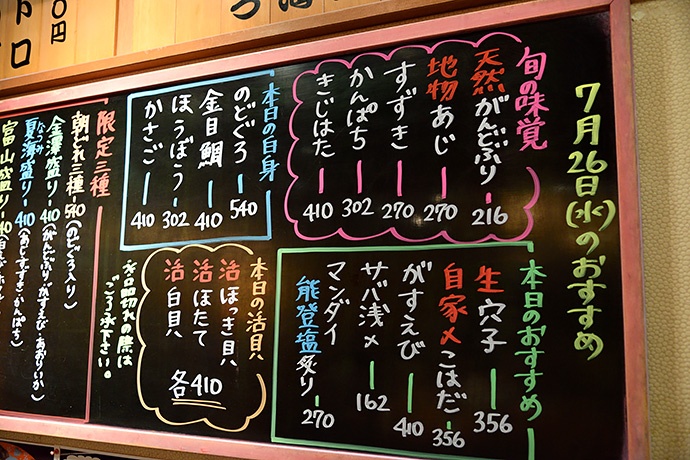 7月26日(水)のおすすめ
旬の味覚
天然がんどぶり 216
地物あじ 270
すずき 270
かんぱち 302
きじはた 410
本日のおすすめ
生穴子 356
自家〆こはだ 356
がすえび 410
サバ浅〆 162
マンダイ
能登塩炙り 270
本日の白身
のどぐろ 540
金目鯛 410
ほうぼう 302
かさご 410
本日の活貝
活ほっき貝
活ほたて
活白貝
各410
ネロ切れの際は
ごう承下さい。
限定三種
朝どれ三種 540 (のどぐろ入り)
金澤盛り 410 (がんどぶり・がすえび・あおりいか)
なつみ
夏海盛り 410 (あじ・すずき・かんぱち)
富山盛り